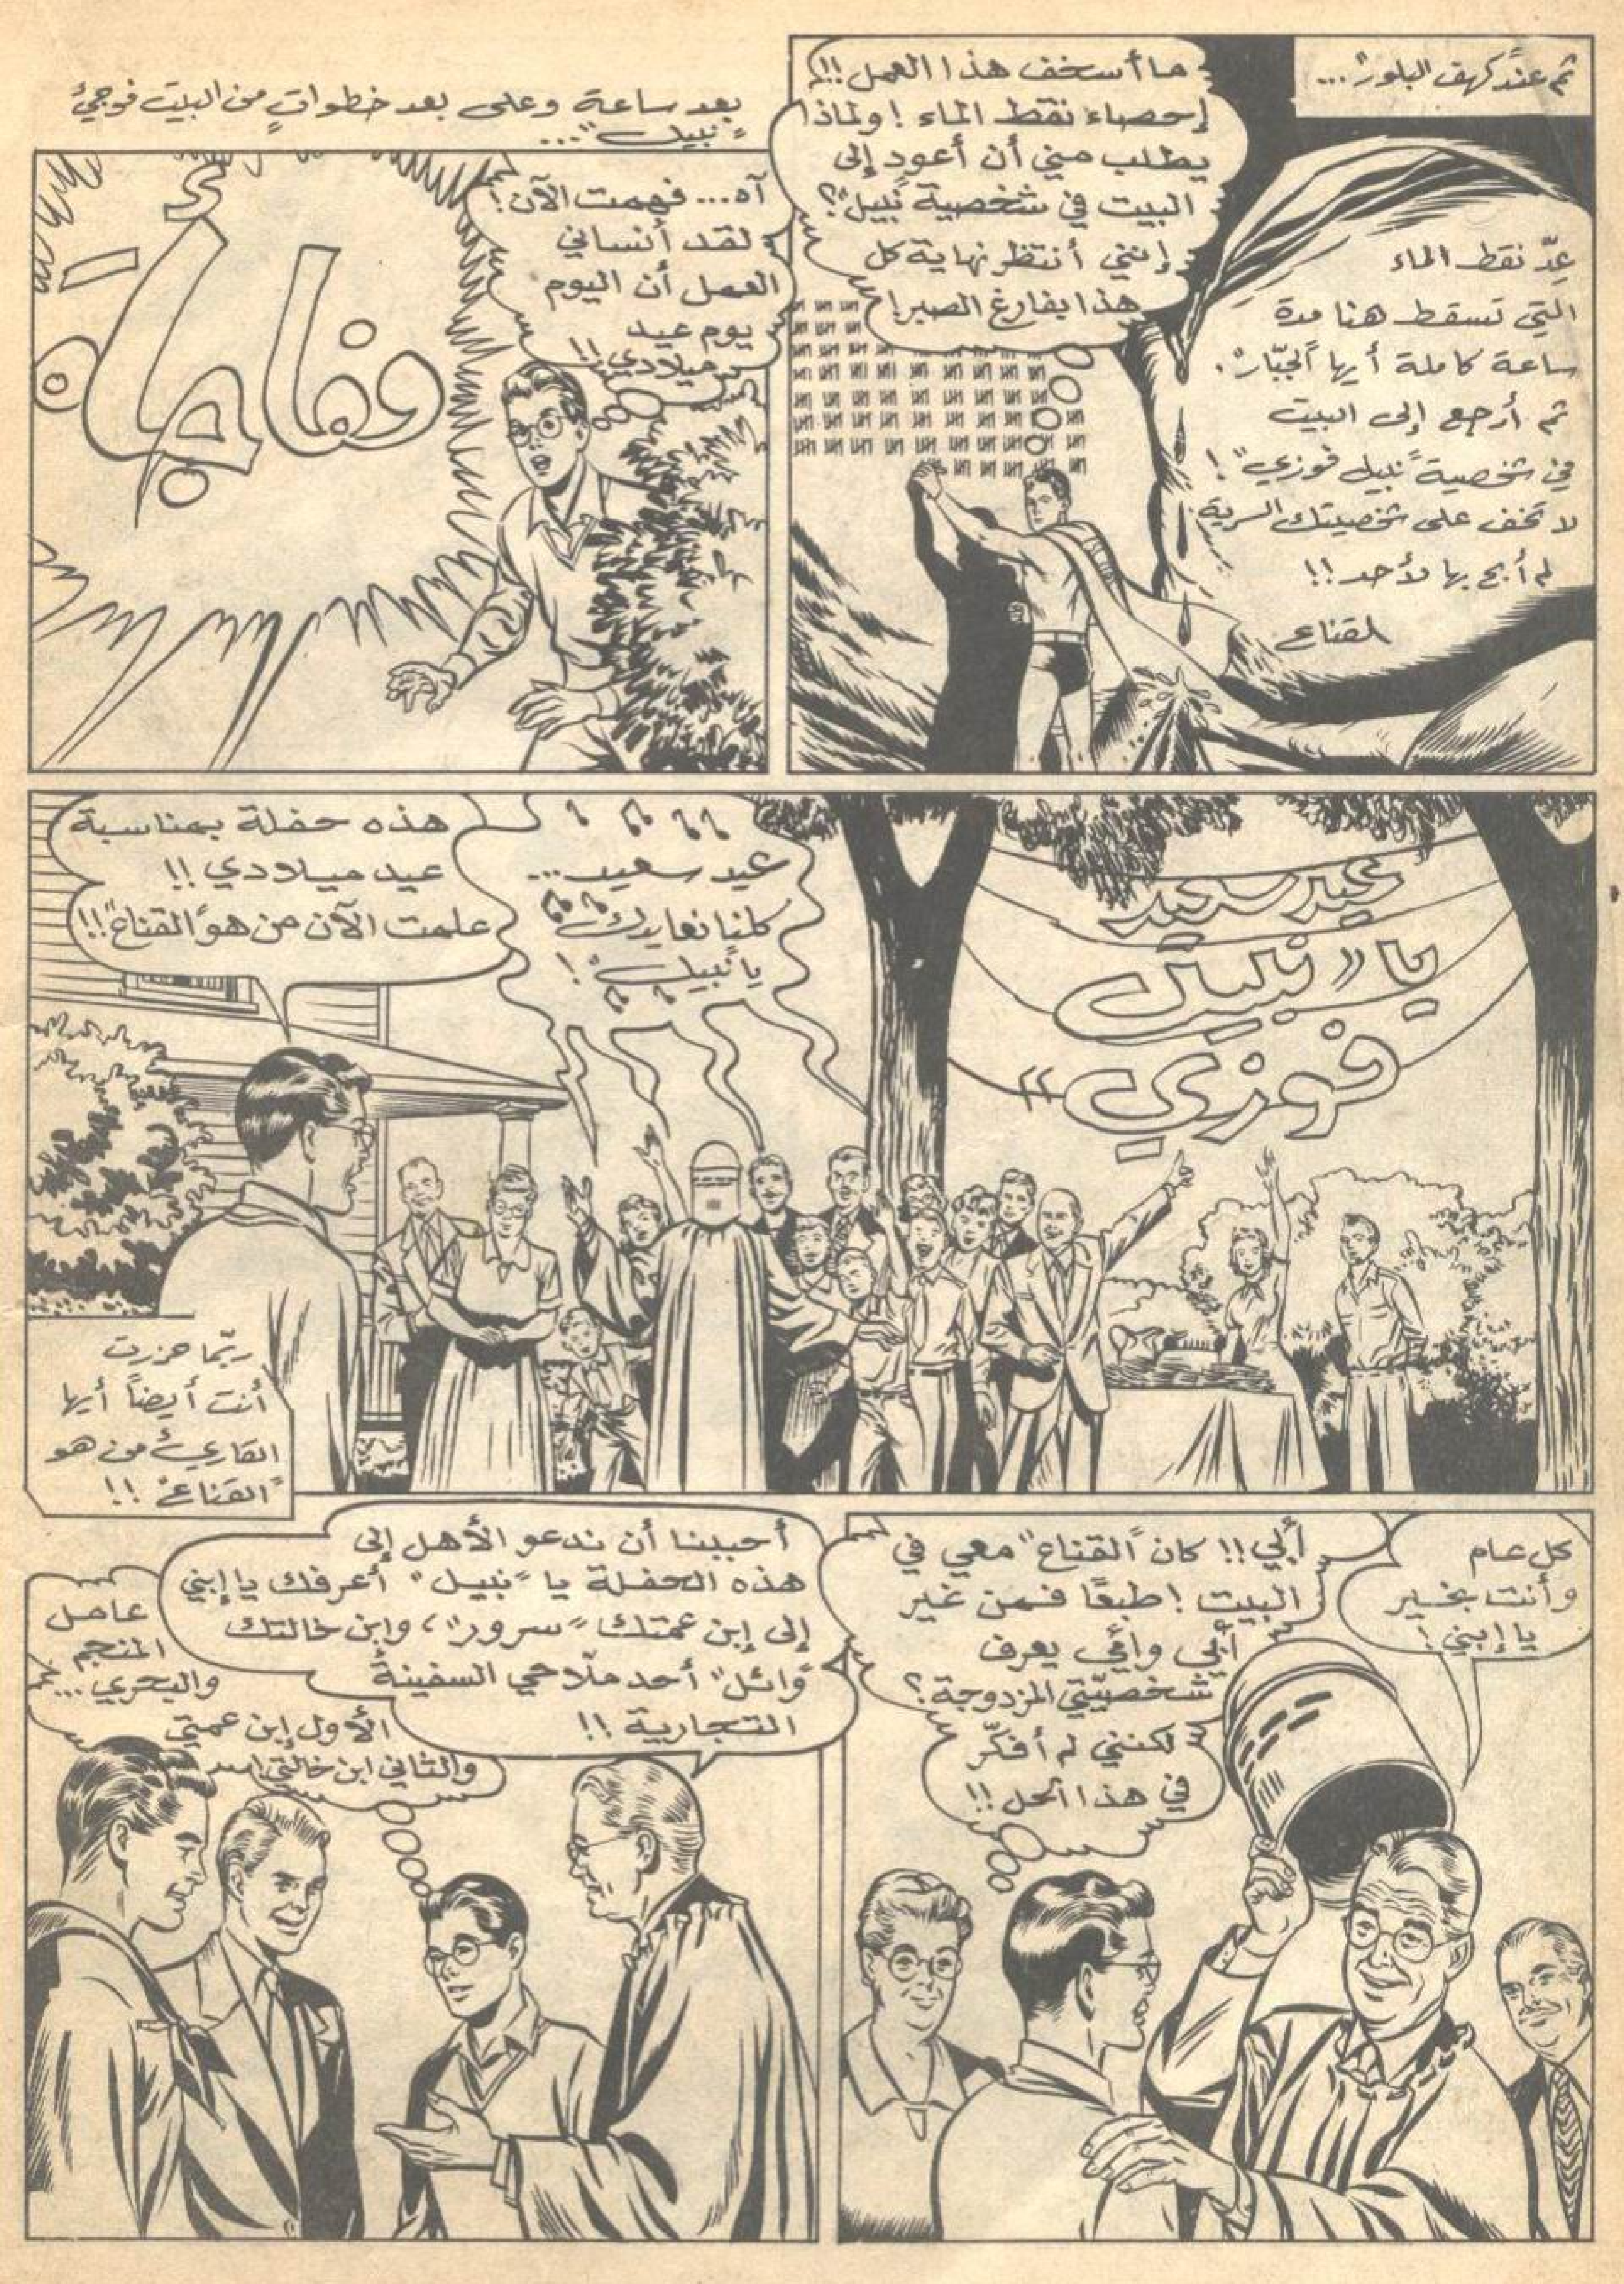 ثم عند "كهف البلور"...
ما أسخف هذا العمل!!
إحصاء نقط الماء! ولماذا
يطلب مني أن أعود إلى
البيت في شخصية "نبيل"؟
إنني أنتظر نهاية كل
هذا بفارغ الصبر!
عِدّ نقط الماء
التي تسقط هنا مدة
ساعة كاملة أيها "الجبّار".
ثم أرجع إلى البيت
في شخصية "نبيل فوزي"!
لا تخف على شخصيتك السرية
لم أبح بها لأحد!!
القناع
بعد ساعة وعلى بعد خطواتٍ من البيت فوجئ
"نبيل"...
آه... فهمت الآن!
لقد أنساني
العمل أن اليوم
يوم عيد
ميلادي!!
مفاجأة
عيد سعيد
يا "نبيل
فوزي"
عيد سعيد...
كلنا نعايدك
يا "نبيل"!
هذه حفلة بمناسبة
عيد ميلادي!!
علمت الآن من هو "القناع"!!
ربّما حزرت
أنت أيضاً أيها
القارئ من هو
"القناع"!!
كل عام
وأنت بخير
يا إبني!
أبي!! كان "القناع" معي في
البيت! طبعًا فمن غير
أبي وأمي يعرف
شخصيّتي المزدوجة؟
لكنني لم أفكّر
في هذا الحل!!
أحببنا أن ندعو الأهل إلى
هذه الحفلة يا "نبيل" أعرفك يا إبني
إلى إبن عمتك "سرور"، وابن خالتك
"وائل" أحد ملّاحي السفينة
التجارية!!
عامل
المنجم
والبحري...
الأول إبن عمتي
والثاني ابن خالتي!